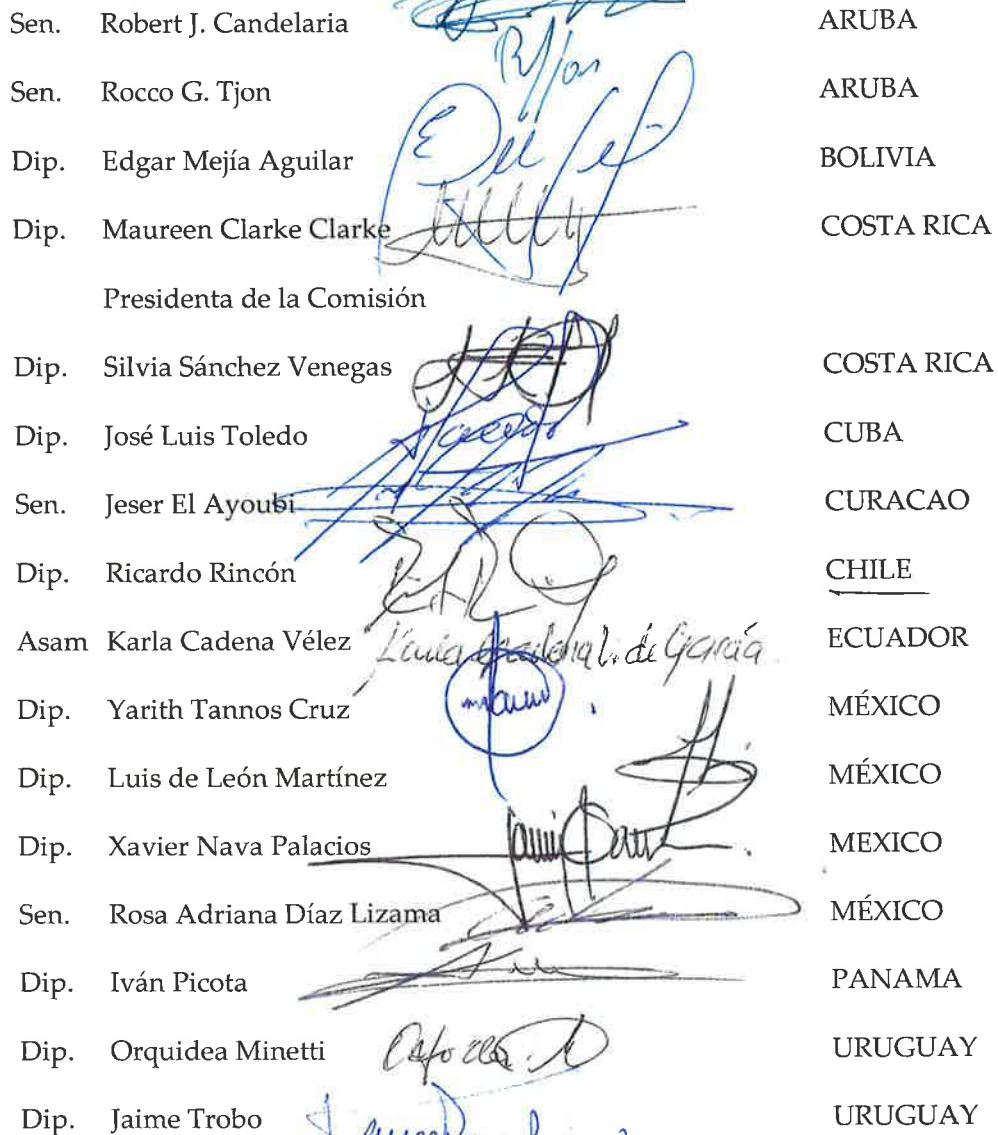 Sen. Robert J. Candelaria ARUBA
Sen. Rocco G. Tjon ARUBA
Dip. Edgar Mejía Aguilar BOLIVIA
Dip. Maureen Clarke Clarke COSTA RICA
Presidenta de la Comisión
Dip. Silvia Sánchez Venegas COSTA RICA
Dip. José Luis Toledo CUBA
Sen. Jeser El Ayoubi CURACAO
Dip. Ricardo Rincón CHILE
Asam Karla Cadena Vélez de García ECUADOR
Dip. Yarith Tannos Cruz MÉXICO
Dip. Luis de León Martínez MÉXICO
Dip. Xavier Nava Palacios MEXICO
Sen. Rosa Adriana Díaz Lizama MÉXICO
Dip. Iván Picota PANAMA
Dip. Orquidea Minetti URUGUAY
Dip. Jaime Trobo URUGUAY